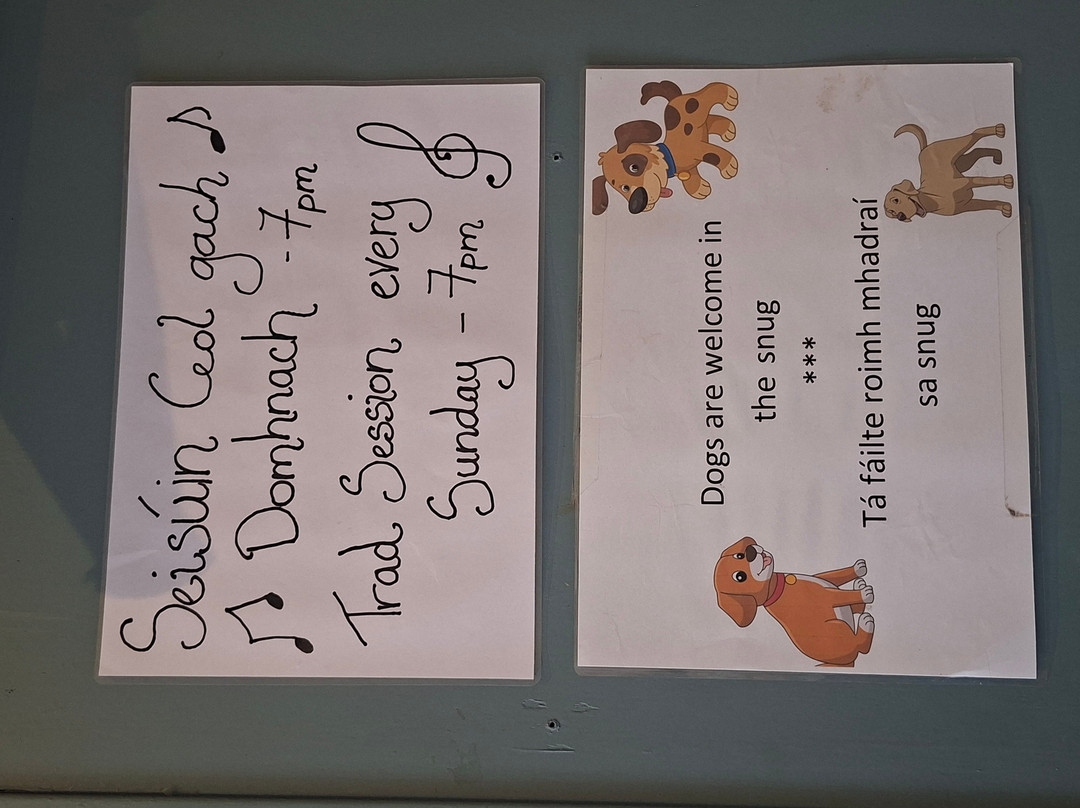 Seisiúin Ceol gach
Domhnach - 7pm
Trad Session every
Sunday - 7pm
Dogs are welcome in
the snug
***
Tá fáilte roimh mhadraí
sa snug